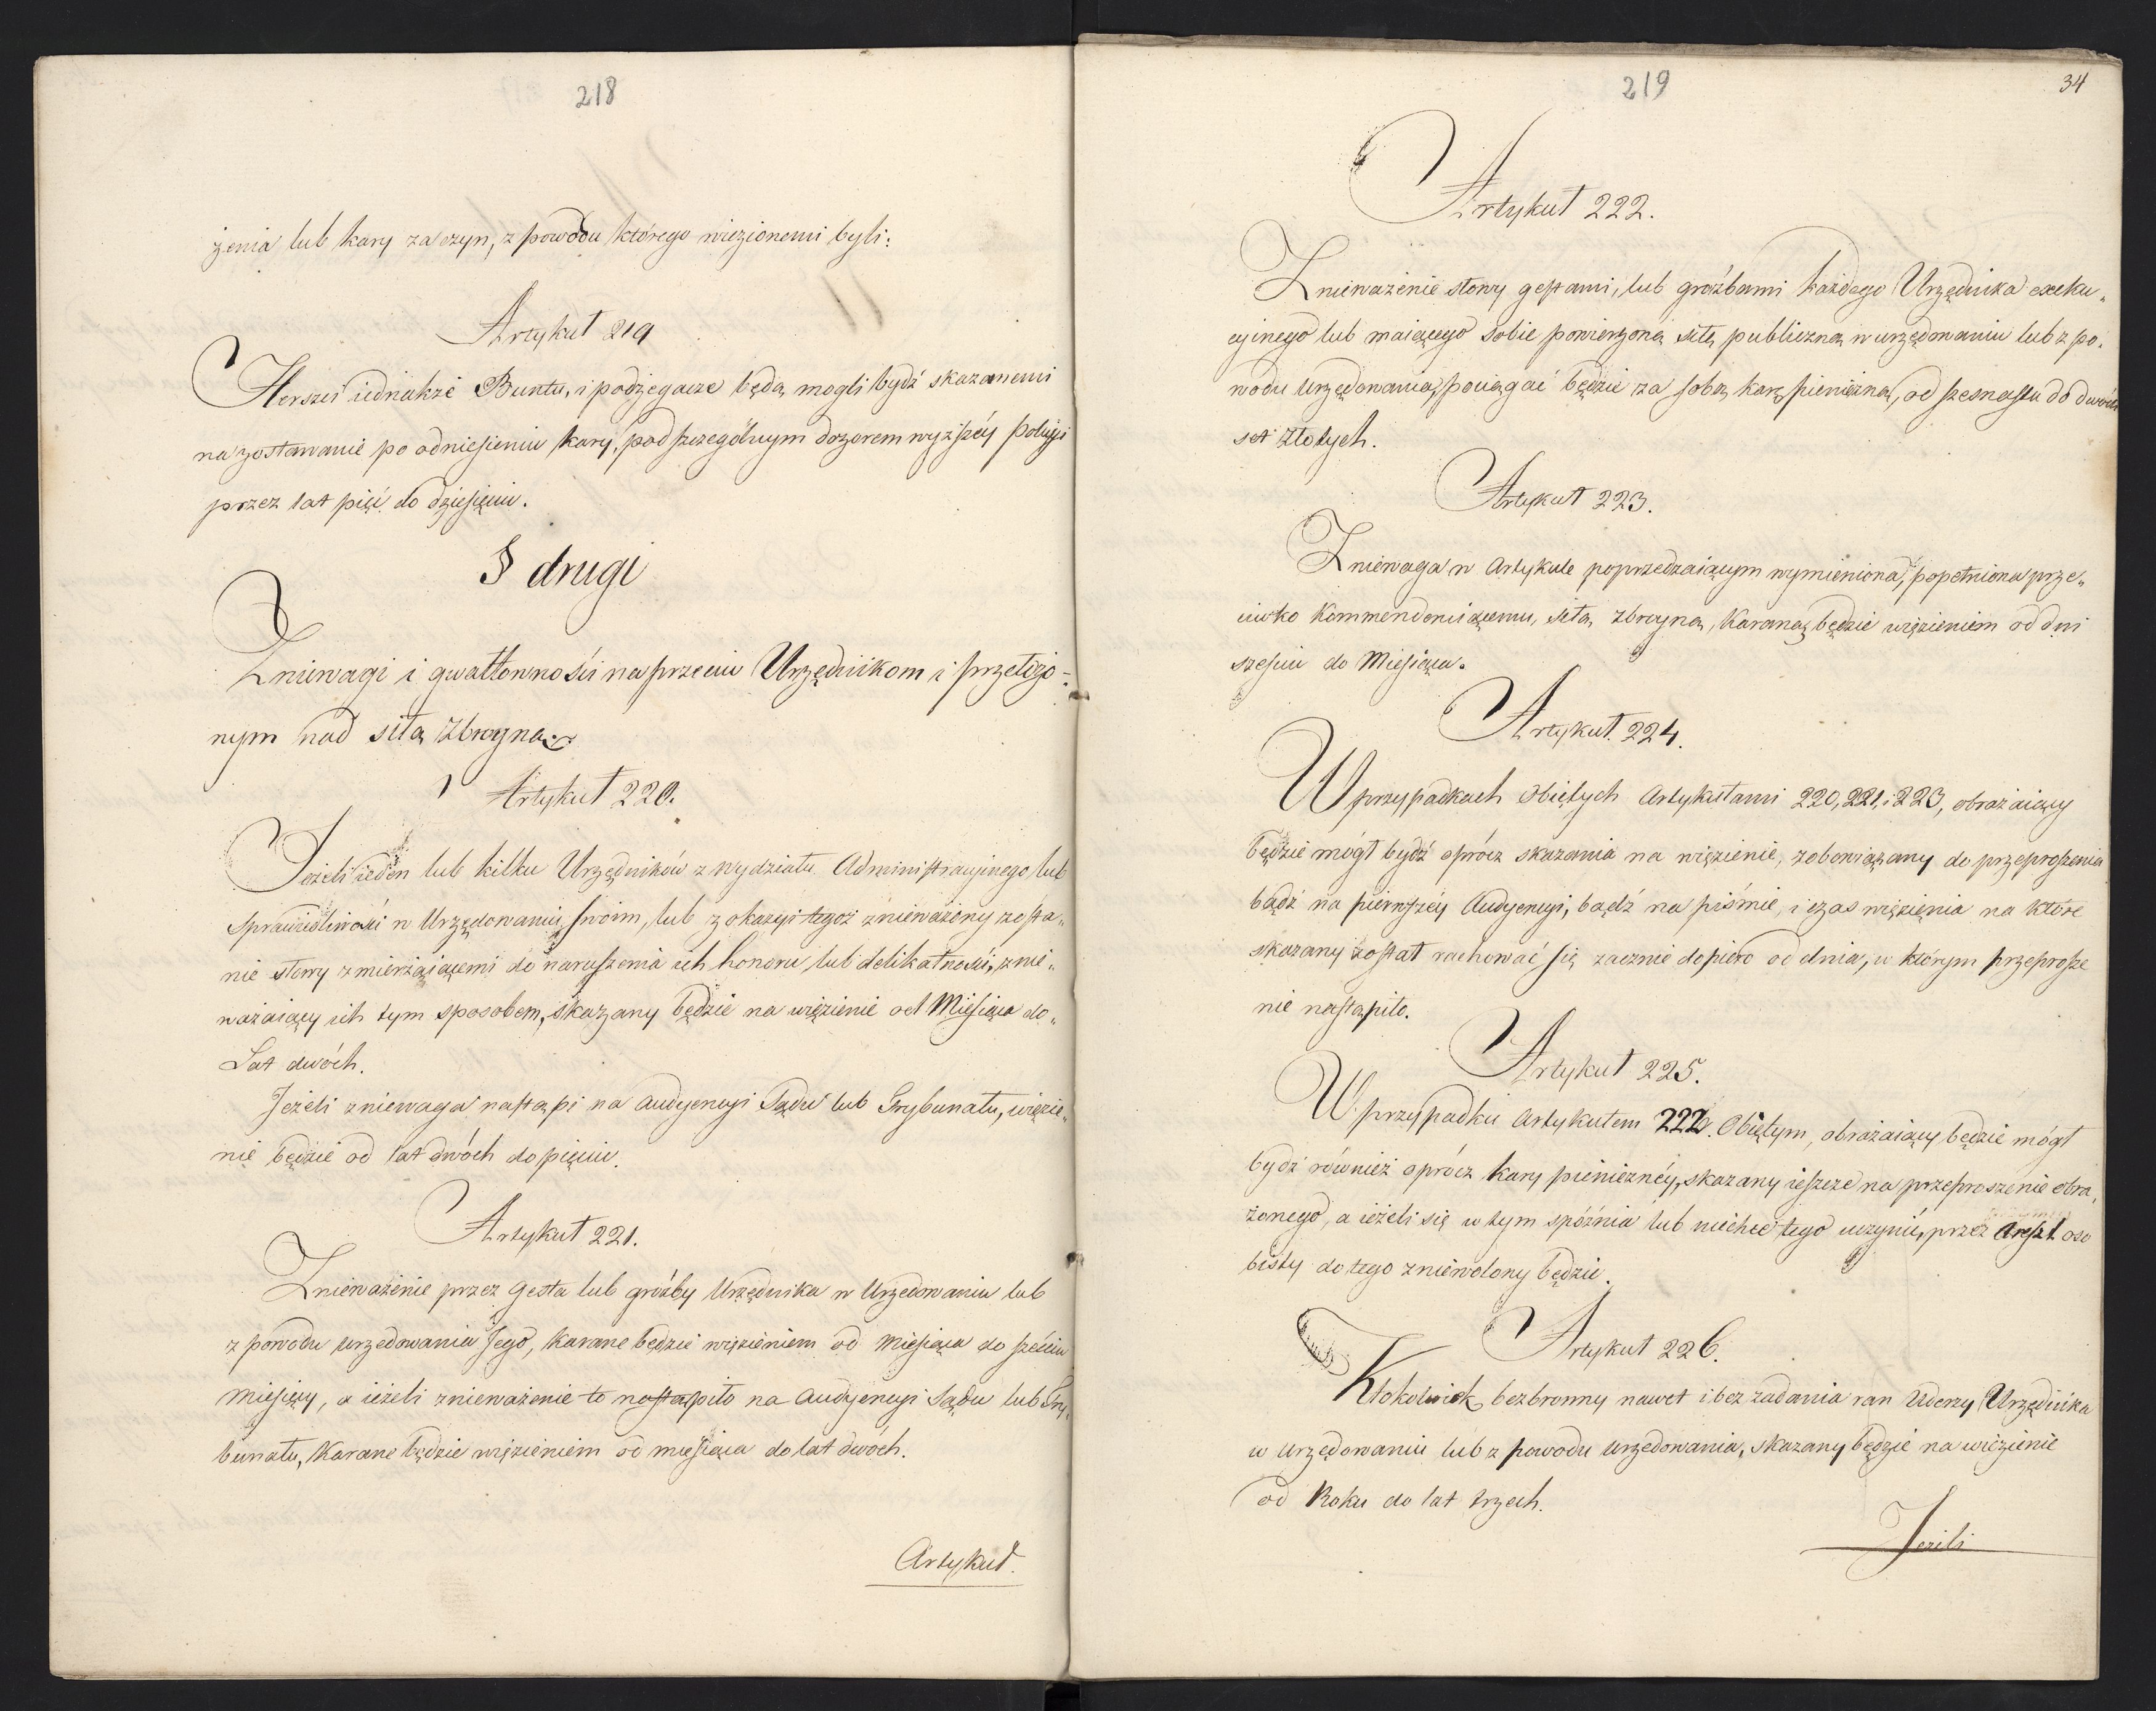 218
żenia lub kary za czyn, z powodu którego więzionemi byli:
Artykuł 219
Herszci iednakże Buntu, i podżegacze będą mogli bydź skazanemi
na zostawanie po odniesieniu kary, pod szczególnym dozorem wyższéy Policyi
przez lat pięć do dziesięciu.
§ drugi
Zniewagi i gwałtowności naprzeciw Urzędnikom i przełożo-
nym nad siłą zbroyną.
Artykuł 220.
Jeżeli ieden lub kilku Urzędników z wydziału Administracyinego lub
Sprawiedliwości w Urzędowaniu swoim, lub z okazyi tegoż znieważony zosta„
nie słowy zmierzaiącemi do naruszenia ich honoru lub delikatności, znie„
ważaiący ich tym sposobem, skazany będzie na więzienie od Miesiąca do„
Lat dwóch.
Jeżeli zniewaga nastąpi na audyencyi Sądu lub Trybunału, więzie„
nię będzie od lat dwóch do pięciu.
Artykuł 221.
Znieważenie przez gesta lub groźby Urzędnika w Urzędowaniu lub
z powodu urzędowania Jego, karane będzie więzieniem od Miesiąca do sześciu
Miesięcy, a ieżeli znieważenie to nastąpiło na audyencyi Sądu lub Try„
bunału, Karane będzie więzieniem od miesiąca do lat dwóch.
Artykuł.
219
34
Artykuł 222.
Znieważenie słowy gestami, lub groźbami każdego Urzędnika exeku„
cyinego lub maiącego sobie powierzoną siłę publiczną w urzędowaniu lub z po„
wodu urzędowania, pociągać będzie za sobą karę pieniężną, od szesnastu do dwóch
set złotych.
Artykuł 223.
Zniewaga w Artykule poprzedzaiącym wymieniona, popełniona prze„
ciwko Kommenderuiącemu, siłą zbroyną, Karaną będzie więzieniem od dni
sześciu do Miesiąca.
Artykuł 224.
W przypadkach Obiętych Artykułami 220, 221, i 223, obrażaiący
będzie mógł bydź oprócz skazania na więzienie, zobowiązany do przeproszenia
bądź na pierwszéy Audyencyi, bądź na piśmie, i czas więzienia na które
skazany został rachować się zacznie dopiero od dnia, w którym przeprosze
nie nastąpiło.
Artykuł 225.
W przypadku Artykułem 222. Obiętym, obrażaiący będzie mógł
bydź również oprócz kary pieniężnéy, skazany ieszcze na przeproszenie obra„
żonego, a ieżeli się w tym spóźnia lub niechce tego uczynić, przez Areszt oso
bisty do tego zniewolony będzie.
Artykuł 226.
Ktokolwiek bezbronny nawet i bez zadania ran Uderzy Urzędnika
w Urzędowaniu lub z powodu urzędowania, skazany będzie na więzienie
od Roku do lat trzech.
Jeżeli